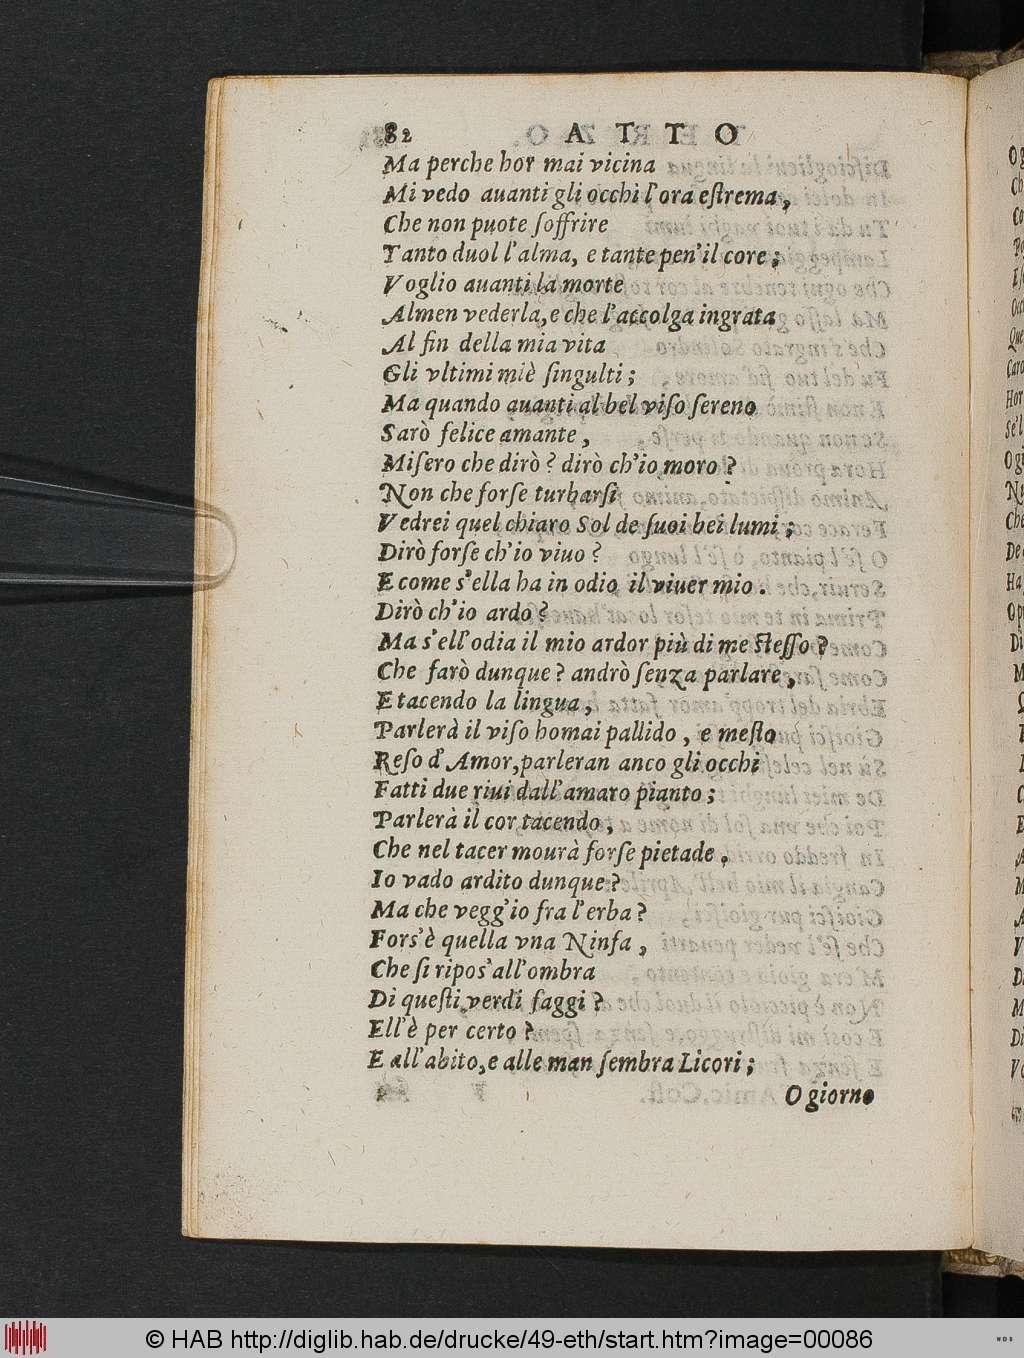 82 ATTO
Ma perche hor mai vicina
Mi vedo auanti gli occhi l'ora eſtrema,
Che non puote ſoffrire
Tanto duol l'alma, e tante pen'il core;
Voglio auanti la morte
Almen vederla, e che l'accolga ingrata
Al fin della mia vita
Gli vltimi miè ſingulti;
Ma quando auanti al bel viſo ſereno
Sarò felice amante,
Miſero che dirò? dirò ch'io moro?
Non che forſe turbarſi
Vedrei quel chiaro Sol de ſuoi bei lumi;
Dirò forſe ch'io viuo?
E come s'ella ha in odio il viuer mio.
Dirò ch'io ardo?
Ma s'ell'odia il mio ardor più di me ſteſſo?
Che farò dunque? andrò ſenza parlare,
E tacendo la lingua,
Parlerà il viſo homai pallido, e meſto
Reſo d'Amor, parleran anco gli occhi
Fatti due riui dall'amaro pianto;
Parlerà il cor tacendo,
Che nel tacer mourà forſe pietade,
Io vado ardito dunque?
Ma che vegg'io fra l'erba?
Fors'è quella vna Ninfa,
Che ſi ripos'all'ombra
Di queſti verdi faggi?
Ell'è per certo?
E all'abito, e alle man ſembra Licori;
O giorno
© HAB http://diglib.hab.de/drucke/49-eth/start.htm?image=00086